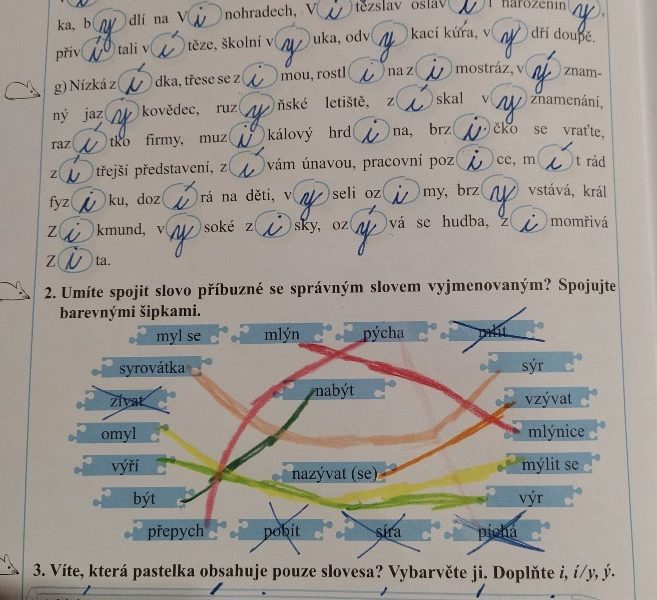 ka, bydlí na Vinohradech, Vítězslav oslavil narozeniny,
přivítali vítěze, školní vyuka, odvykací kúra, vydří doupě.
g) Nízká zídka, třese se zimou, rostlina zimostráz, význam-
ný jazykovědec, ruzyňské letiště, získal vyznamenání,
razítko firmy, muzikálový hrdina, brzičko se vraťte,
zítřejší představení, zívám únavou, pracovní pozice, mít rád
fyziku, dozírá na děti, vyseli ozimy, brzy vstává, král
Zikmund, vysoké zisky, ozývá se hudba, zimomřivá
Zita.
2. Umíte spojit slovo příbuzné se správným slovem vyjmenovaným? Spojujte
barevnými šipkami.
myl se mlýn pýcha mlít
syrovátka sýr
zívat nabýt vzývat
omyl mlýnice
výří nazývat (se) mýlit se
být výr
přepych pobít síra píchá
3. Víte, která pastelka obsahuje pouze slovesa? Vybarvěte ji. Doplňte i, í/y, ý.